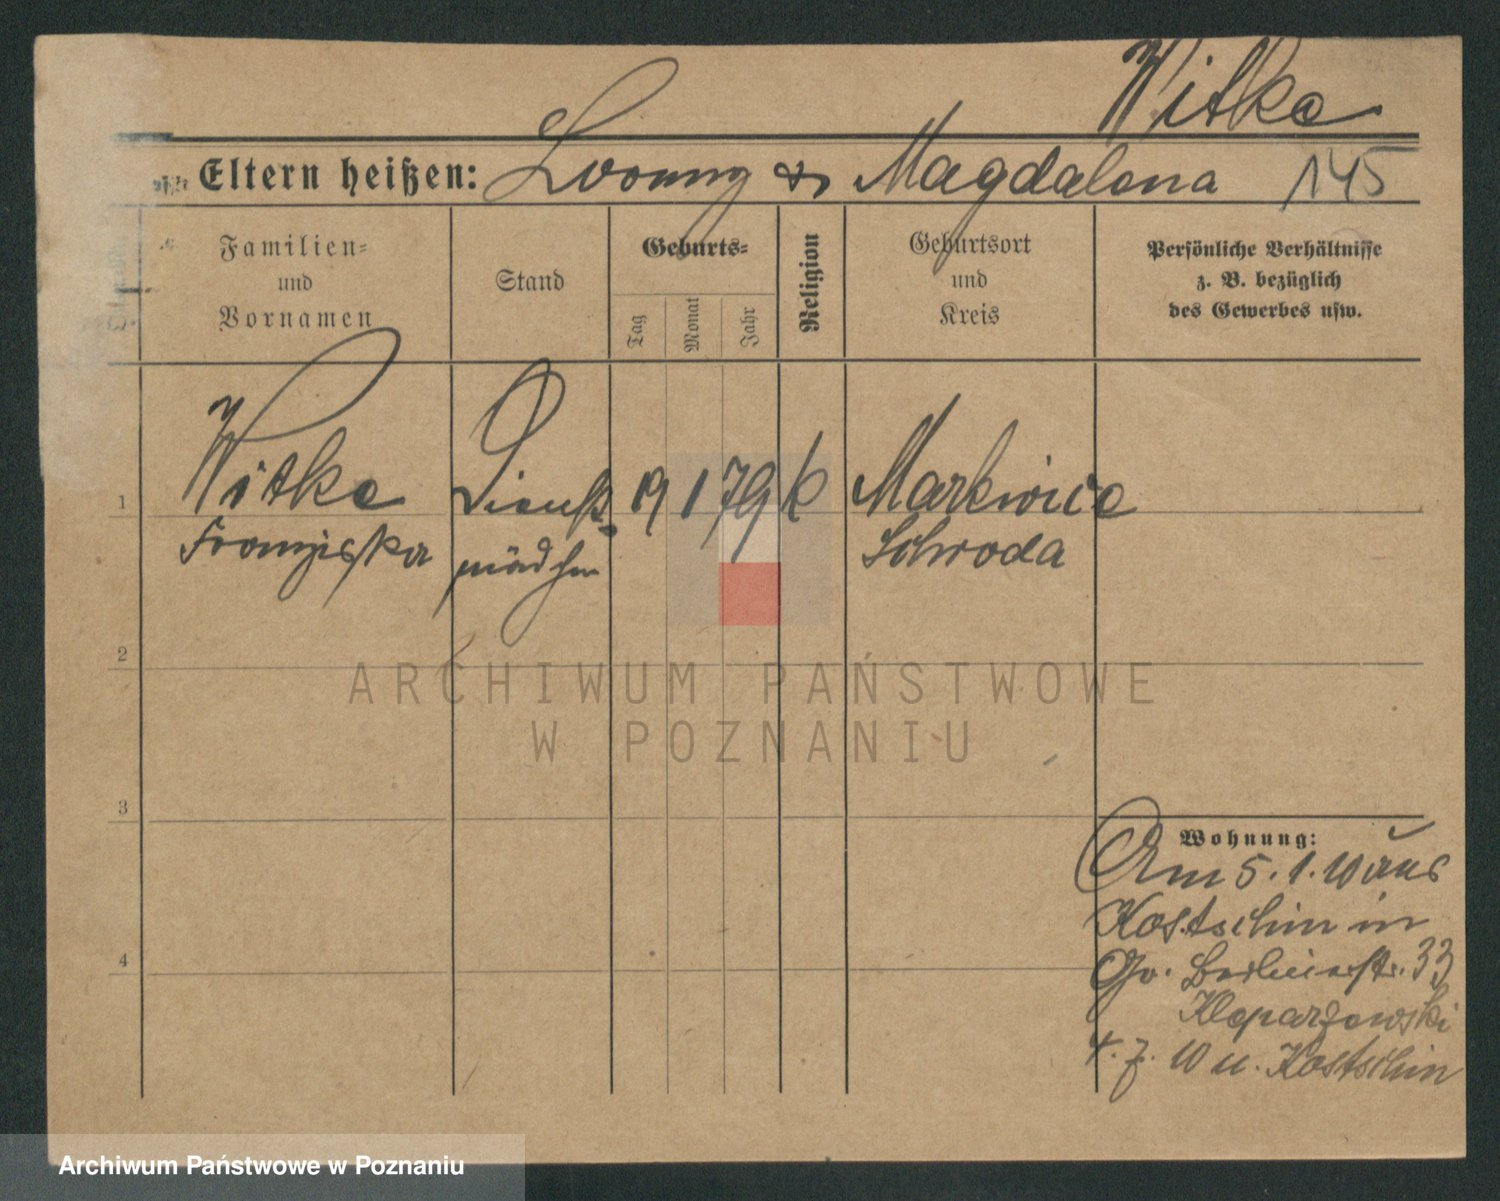 Witke
Eltern heißen: Lorenz & Magdalena 145
Familien-
und
Vornamen
Stand
Geburts-
Tag
Monat
Jahr
Religion
Geburtsort
und
Kreis
Persönliche Verhältnisse
z. B. bezüglich
des Gewerbes usw.
1
Witke Dienst- 19 1 79 k Markwice
Franziska mädchen Schroda
2
3
4
Wohnung:
Am 5.1.10 aus
Kostschin in
Gr. Berlinerstr. 33
Kleparzewski
4.7.10 u. Kostschin
ARCHIWUM PAŃSTWOWE
W POZNANIU
Archiwum Państwowe w Poznaniu